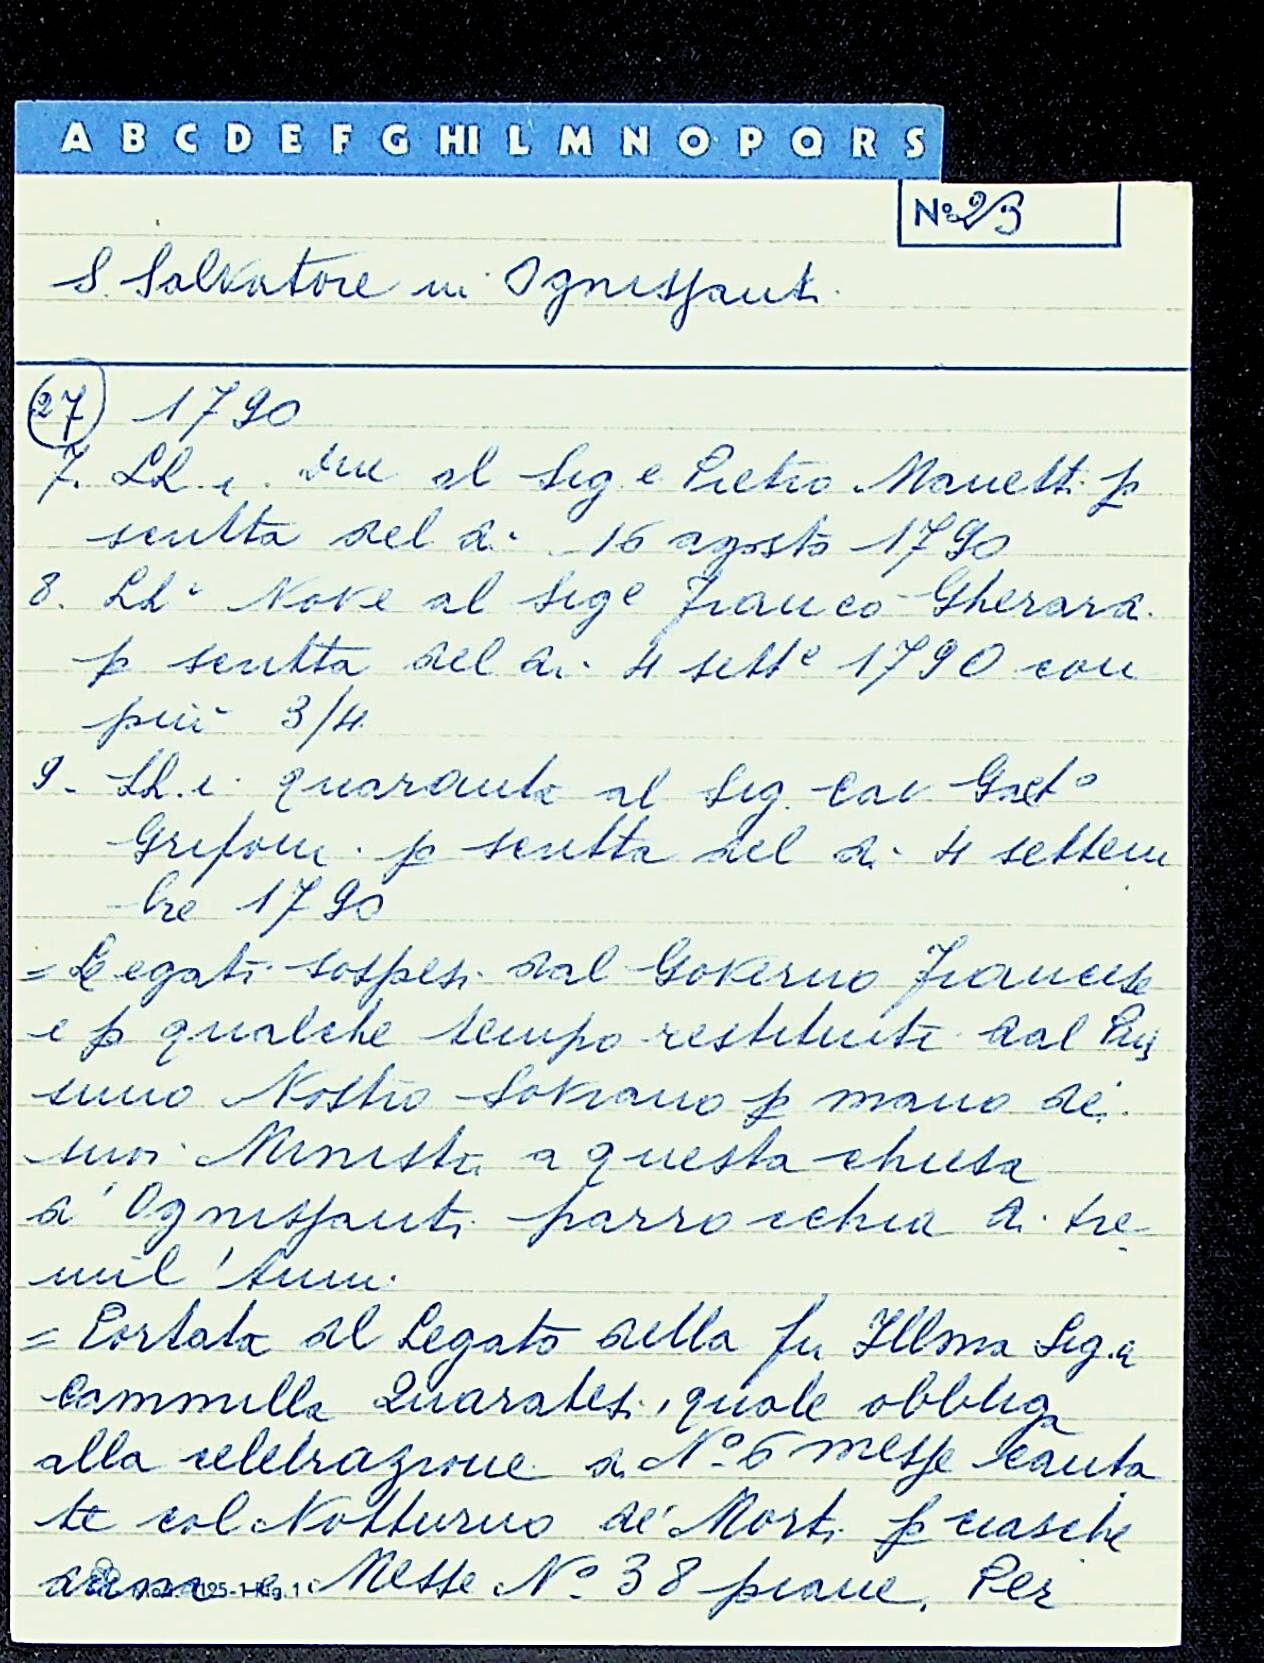 A B C D E F G HI L M N O P Q R S
Nº 23
S. Salvatore in Ognissanti
27 1790
7. Ld. i. al Sig.e Pietro Manetti p
scritta del di 16 agosto 1790
8. Ld.i Nove al Sig.e Franco Gherardi
p scritta del di 4 sett.e 1790 con
più 3/4
9. Ld.i quaranta al Sig. Cav. Gaet.o
Grifoni p scritta del di 4 settem
bre 1790
= Legati sospesi dal Governo Francese
e p qualche tempo restituiti dal Piis
simo Nostro Sovrano p mano de'
suoi Ministri a questa chiesa
d'Ognissanti parrocchia di tre
mil'Anime
= Portata al Legato della fu Illma Sig.a
Cammilla Quaratesi, quale obbliga
alla celebrazione di Nº 6 messe canta
te col Notturno de' Morti p ciasche
Messe Nº 38 piane. Per